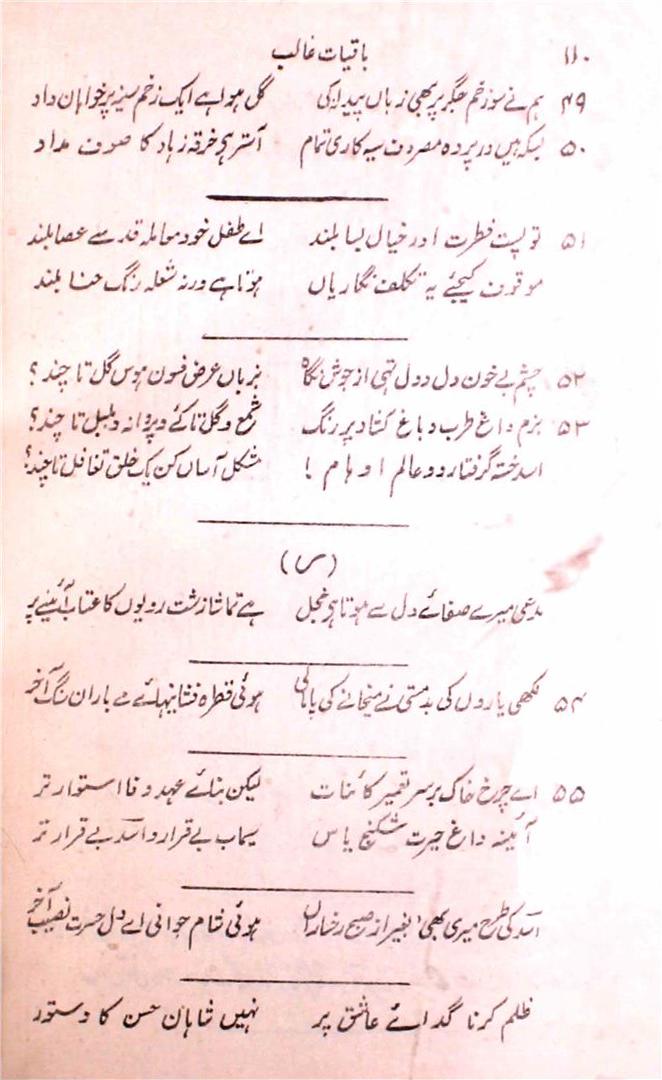 ۱۱۰ باقیات غالب
۴۹ ہم نے سو زخم جگر پر بھی زباں پیدا نہ کی گل ہوا ہے ایک زخم سینہ پر خواہان داد
۵۰ بسکہ ہیں در پردہ مصروف سیہ کاری تمام آستر ہی خرقہ زہاد کا صوف مداد
۵۱ تو پست فطرت اور خیال بسا بلند اے طفل خود معاملہ قد سے عصا بلند
موقوف کیجئے یہ تکلف نگاریاں ہوتا ہے ورنہ شعلہ رنگ حنا بلند
۵۲ چشم بے خون دل و دل تہی از جوش نگاہ بزباں عرض فسون ہوس گل تا چند؟
۵۳ بزم داغ طرب و باغ کشاد پر رنگ شمع و گل تا کے و پروانہ و بلبل تا چند؟
اسد خستہ گرفتار دو عالم اوہام! مشکل آساں کن یک خلق تغافل تا چند؟
(ر)
مدعی میرے صفائے دل سے ہوتا ہی خجل ہے تماشا زشت رویوں کا عتاب آئینے پر
۵۴ لکھی یاروں کی بدمستی نے میخانے کی پامالی ہوئی قطرہ فشانیہائے مے باران سنگ آخر
۵۵ اے چرخ خاک بر سر تعمیر کائنات لیکن بنائے عہد وفا استوار تر
آئینہ داغ حیرت و حیرت شکنج یاس سیماب بے قرار و اسد بے قرار تر
اسد کی طرح میری بھی، بغیر از صبح رخساراں ہوئی شام جوانی اے دل حسرت نصیب آخر
ظلم کرنا گدائے عاشق پر نہیں شاہان حسن کا دستور